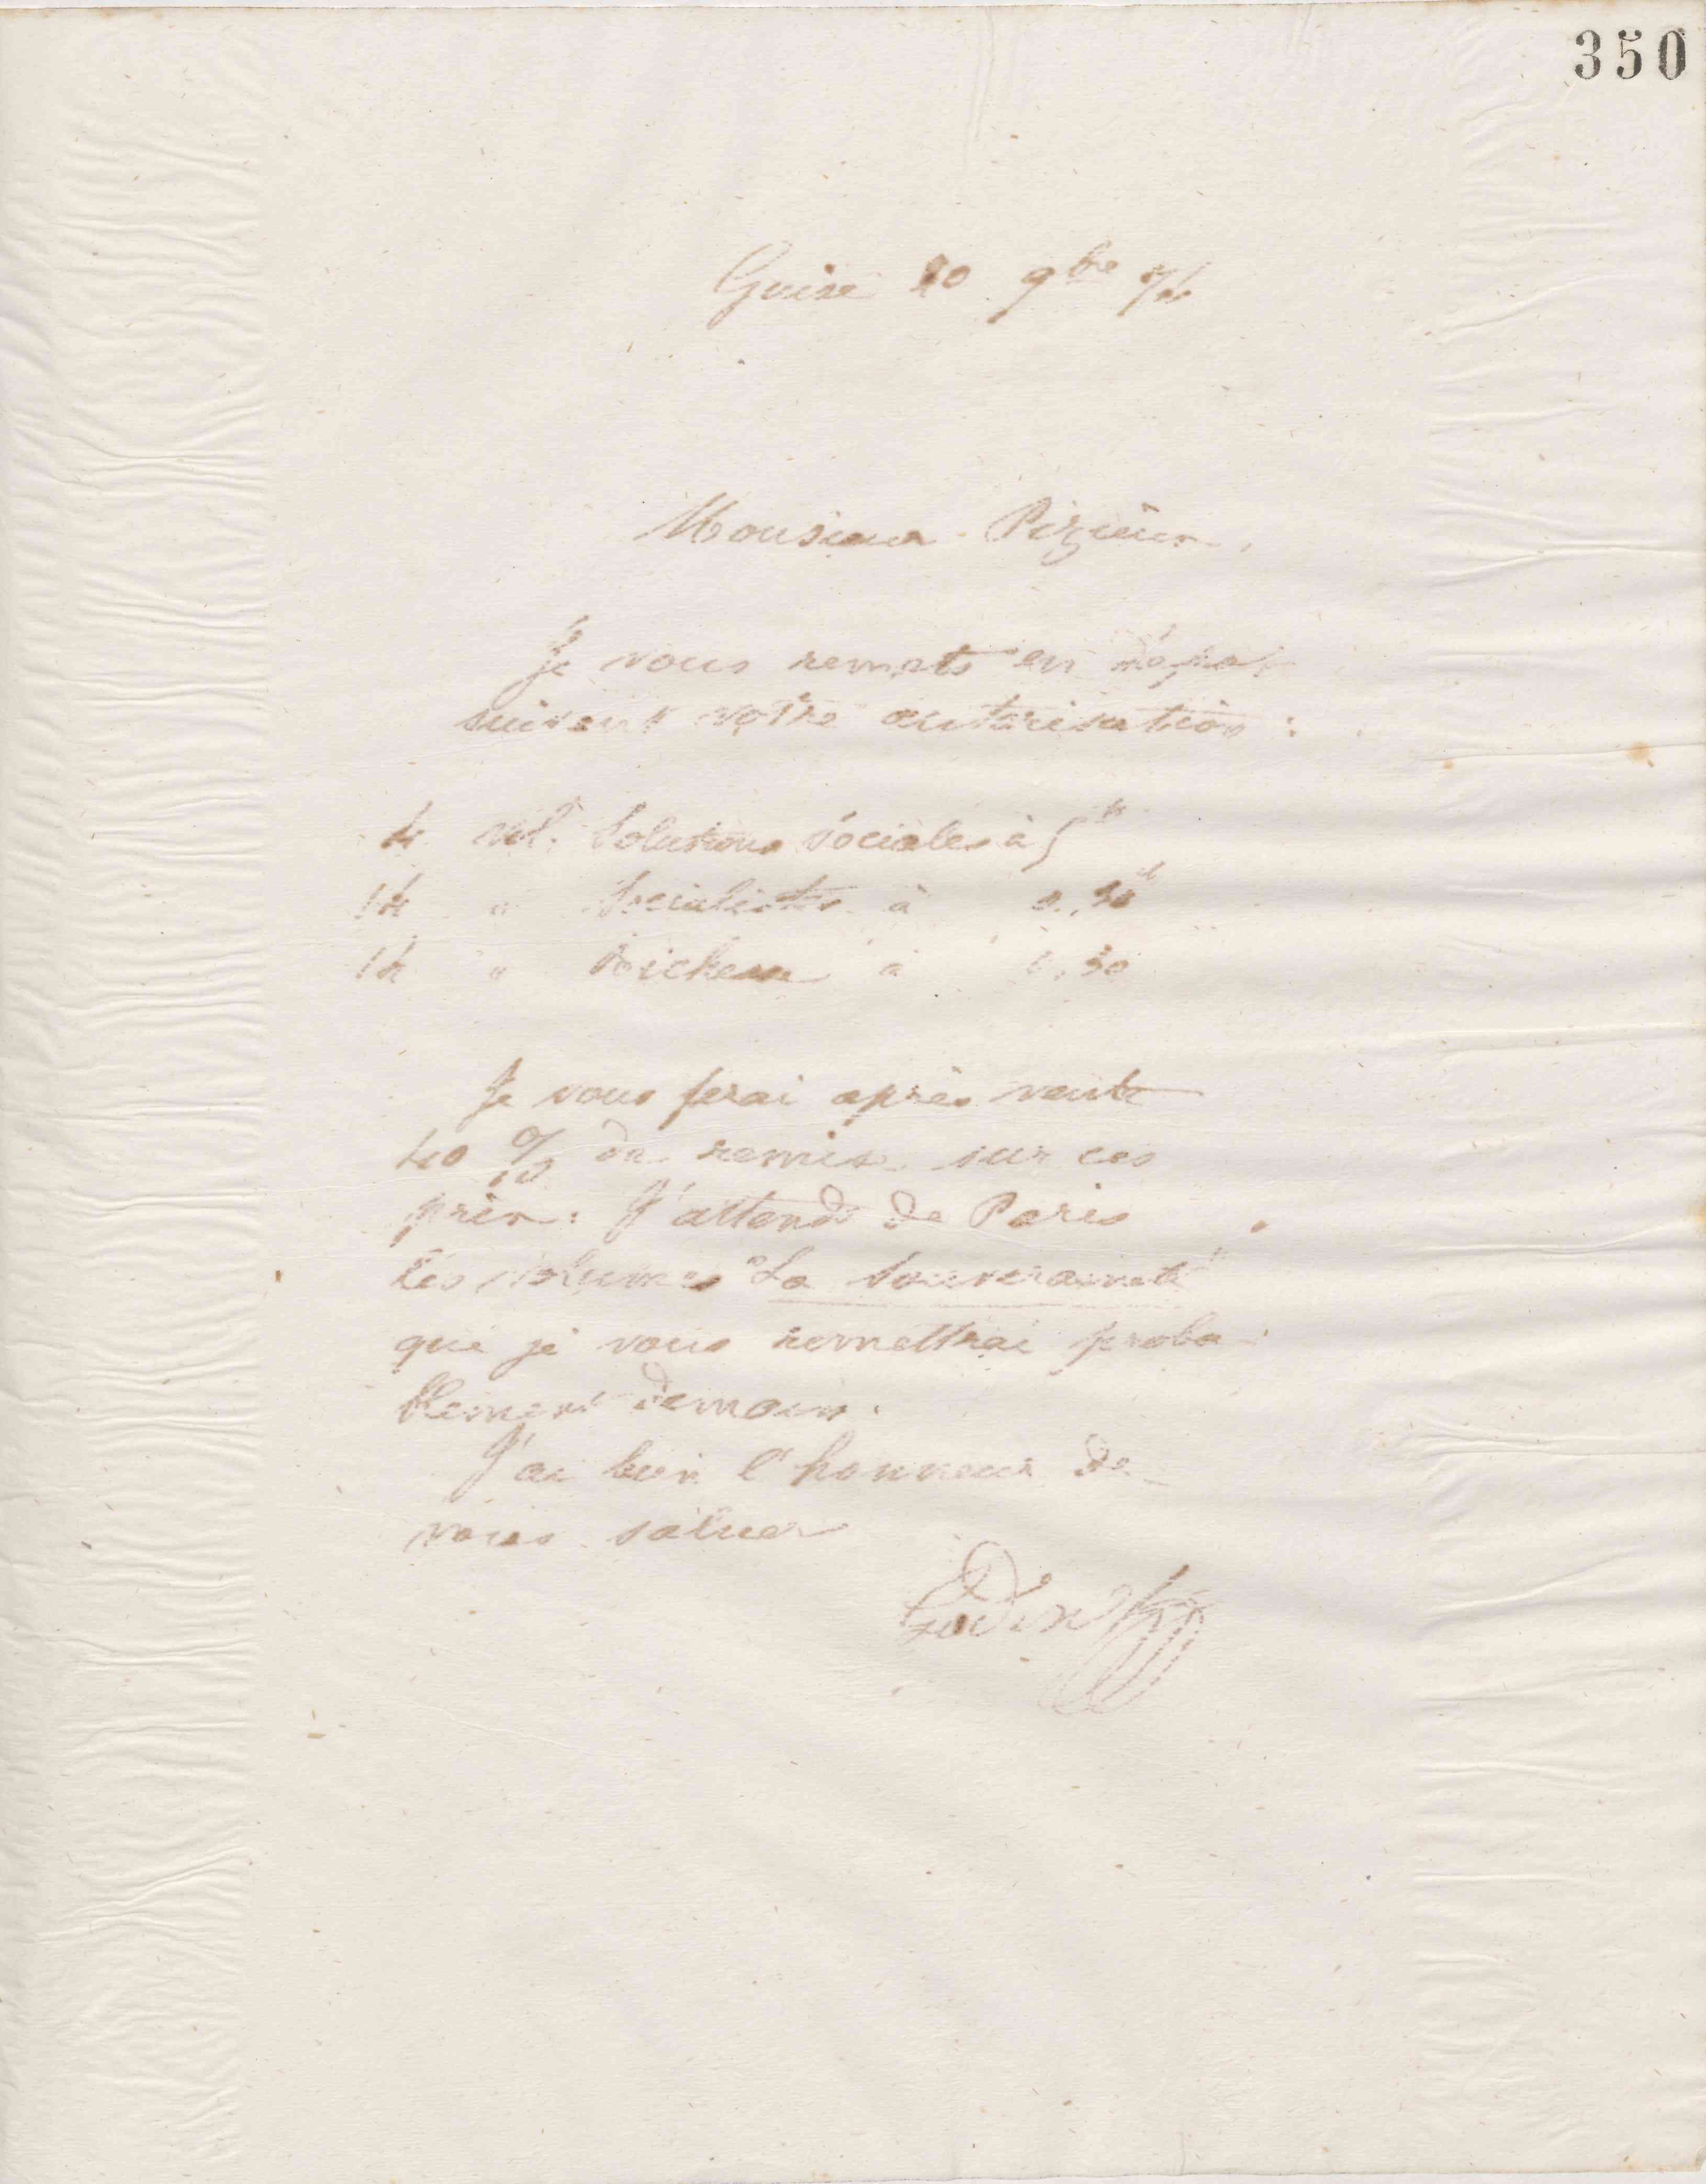 350
Guise 20 9bre 74
Monsieur
Je vous remets en dépôt
suivant votre autorisation :
4 vol. Solutions Sociales à 5 fr
14 " Socialistes à 0,50
14 " Richesse à 0,50
Je vous ferai après vente
40 % de remise sur ces
prix. J'attends de Paris
les volumes "La Souveraineté"
que je vous remettrai proba
blement demain.
J'ai bien l'honneur de
vous saluer
Godin